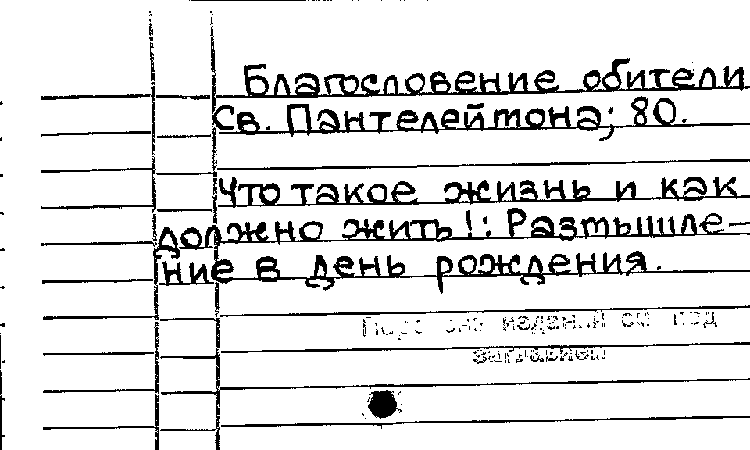 Благословение обители
Св. Пантелеймона; 80.
Что такое жизнь и как
должно жить!: Размышле-
ние в день рождения.
изданий см. под
заглавием